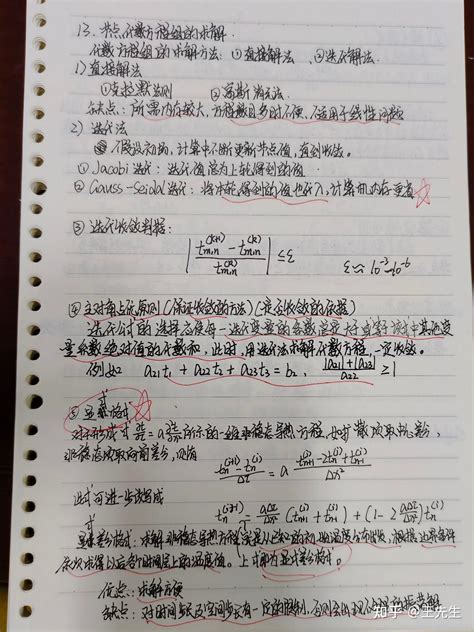 13. 节点代数方程组的求解.
代数方程组的求解方法: ①直接解法 ②迭代解法.
1) 直接解法
①克拉默法则 ②高斯消元法.
缺点: 所需内存较大, 方程数目多时不便, 不适用于线性问题
2) 迭代法
假设初场, 计算中不断更新节点值, 直到收敛.
① Jacobi迭代: 迭代值总为上轮得到的值.
② Gauss-Seidel迭代: 将本轮得到的值也代入, 计算机内存更省
③ 迭代收敛判据:
| (t_{m,n}^{(k+1)} - t_{m,n}^{(k)}) / t_{m,n}^{(k)} | ≤ ε ε≈10^{-3}~10^{-6}
④ 主对角占优原则 (保证收敛的方法) (是否收敛的依据)
迭代公式的选择应使每一迭代变量的系数总大于或等于该式中其他变
量系数绝对值的代数和, 此时, 用迭代法求解代数方程, 一定收敛.
例如 a21t1 + a22t2 + a23t3 = b2, (|a21|+|a23|)/a22 ≥ 1
⑤ 显式格式
所示的一维非稳态导热方程, 如扩散项取中心差分,
非稳态项取向前差分, 则有
(t_n^{(i+1)} - t_n^{(i)})/Δτ = a (t_{n+1}^{(i)} - 2t_n^{(i)} + t_{n-1}^{(i)})/Δx²
此式可进一步改写成
t_n^{(i+1)} = aΔτ/Δx² (t_{n+1}^{(i)} + t_{n-1}^{(i)}) + (1 - 2 aΔτ/Δx²) t_n^{(i)}
显式差分格式: 求解非稳态导热方程 从已知的初始温度分布出发, 根据边界条件
依次求得以后各个时间层上的温度值. 上式即为显式差分格式.
优点: 求解方便
缺点: 对时间步长及空间步长有一定的限制, 否则会出现不合理的振荡解
知乎 @王先生